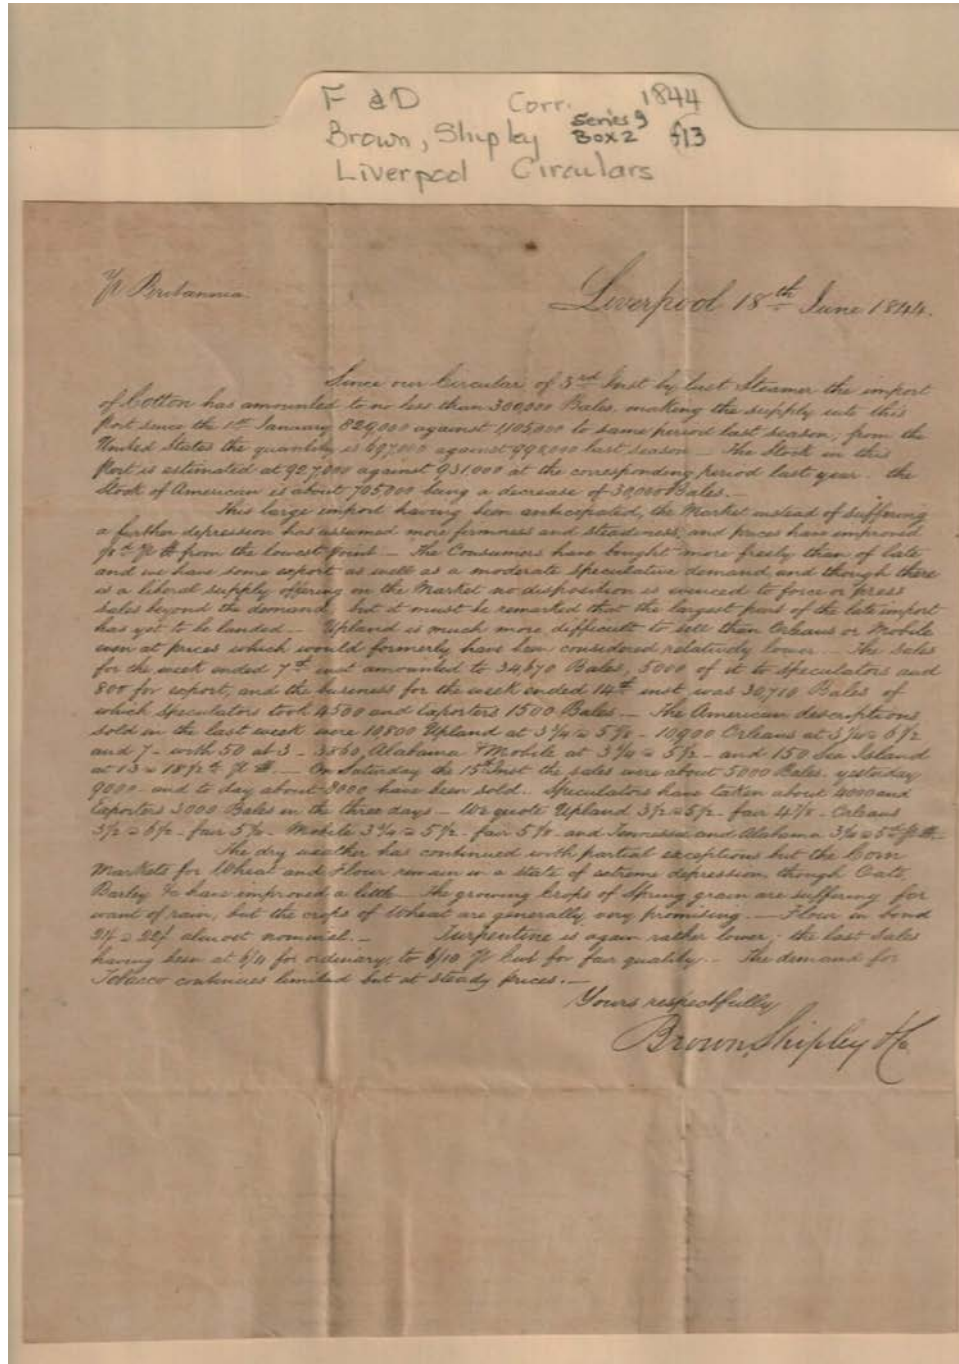 F & D Corr. 1844
Brown, Shipley Series 9 Box 2 f13
Liverpool Circulars
Pr Britannia
Liverpool 18th June 1844.
Since our Circular of 3rd Inst by last Steamer the import
of Cotton has amounted to no less than 300,000 Bales, making the supply into this
Port since the 1st January 829,000 against 1,105,000 to same period last season, from the
United States the quantity is 697,000 against 998,000 last season — The Stock in this
Port is estimated at 927,000 against 931,000 at the corresponding period last year. the
Stock of American is about 705,000 being a decrease of 30,000 Bales. —
This large import having been anticipated, the Market instead of suffering
a further depression has assumed more firmness and steadiness, and prices have improved
from the lowest point — The Consumers have bought more freely than of late
and we have some export as well as a moderate speculative demand, and though there
is a liberal supply offering on the Market no disposition is evinced to force or press
sales beyond the demand, but it must be remarked that the largest part of the late import
has yet to be landed — Upland is much more difficult to sell than Orleans or Mobile
even at prices which would formerly have been considered relatively lower — The Sales
for the week ended 7th inst amounted to 34,670 Bales, 5000 of it to speculators and
800 for export, and the business for the week ended 14th inst was 30,710 Bales of
which speculators took 4500 and Exporters 1500 Bales — The American descriptions
sold in the last week were 10800 Upland at 3 1/4 @ 5 7/8 - 10900 Orleans at 3 1/4 @ 6 1/2
and 7 - with 50 at 8 - 3860, Alabama & Mobile at 3 1/4 @ 5 1/2 - and 150 Sea Island
at 13 @ 18 1/2 — On Saturday the 15th Inst the sales were about 5000 Bales, yesterday
9000 - and to day about 8000 have been sold. Speculators have taken about 4000 and
Exporters 3000 Bales in the three days — We quote Upland 3 1/2 @ 5 1/2 - fair 4 7/8 - Orleans
3 1/2 @ 6 1/2 - fair 5 1/8 - Mobile @ 5 1/2 - fair 5 1/8 and Tennessee and Alabama
The dry weather has continued with partial exceptions but the Corn
Markets for Wheat and Flour remain in a state of extreme depression, though Oats,
Barley &c have improved a little — The growing Crops of Spring grain are suffering for
want of rain, but the crops of Wheat are generally very promising. — Flour in bond
almost nominal. — Turpentine is again rather lower; the last Sales
having been at 6/4 for ordinary, to 6/10 Pr Cwt for fair quality. — The demand for
Tobacco continues limited but at steady prices. —
Yours respectfully
Brown, Shipley & Co.